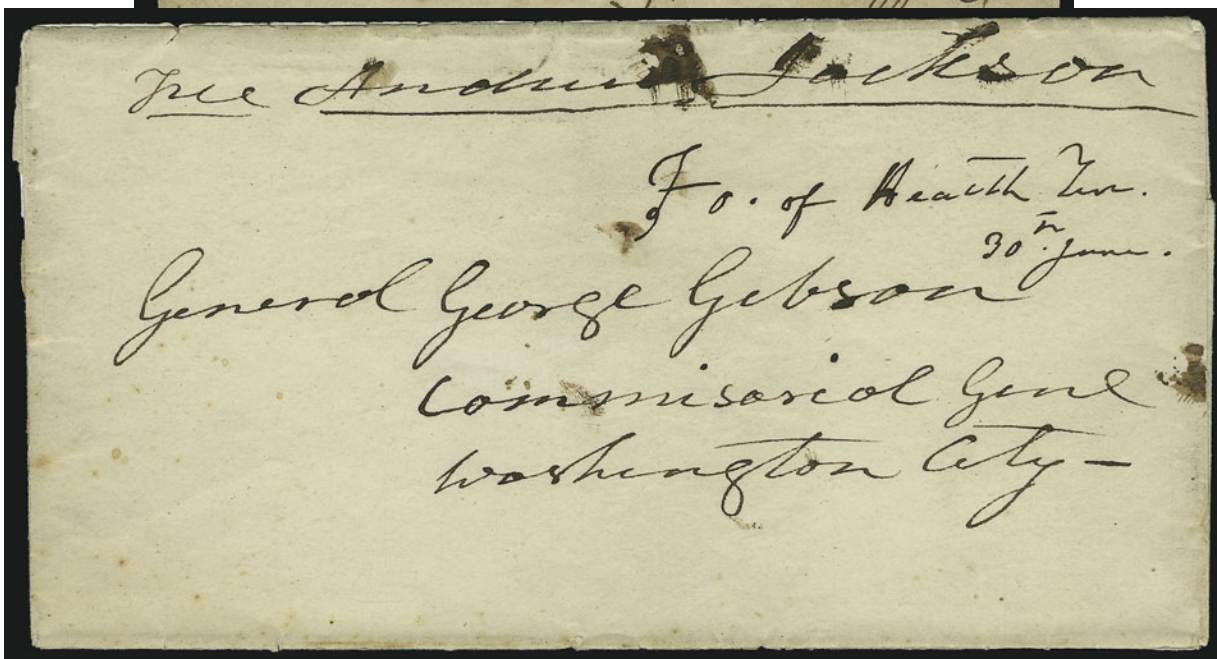 Free Andrew Jackson
Fo. of Heatth Ten.
30th June.
General George Gibson
Commisariol Genl
Washington City —